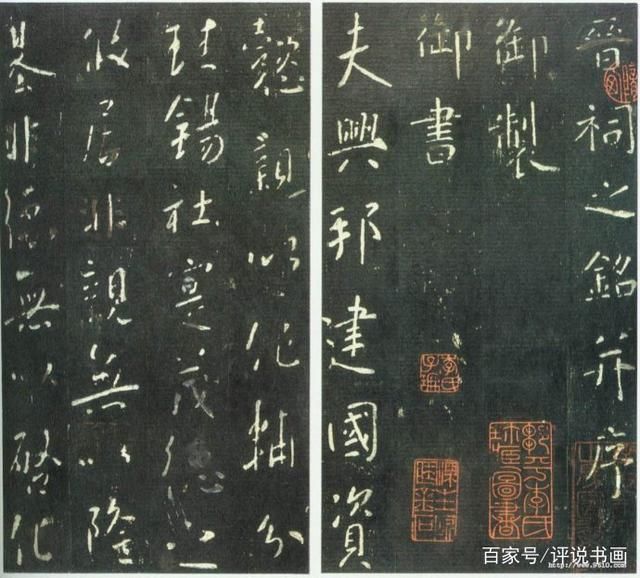 晉祠之銘并序
御製
御書
夫興邦建國資
懿親以作輔分
珪錫社寔茂德之
攸居非親無以隆
基非德無以啓化
百家号/评说书画
http://www.9610.com